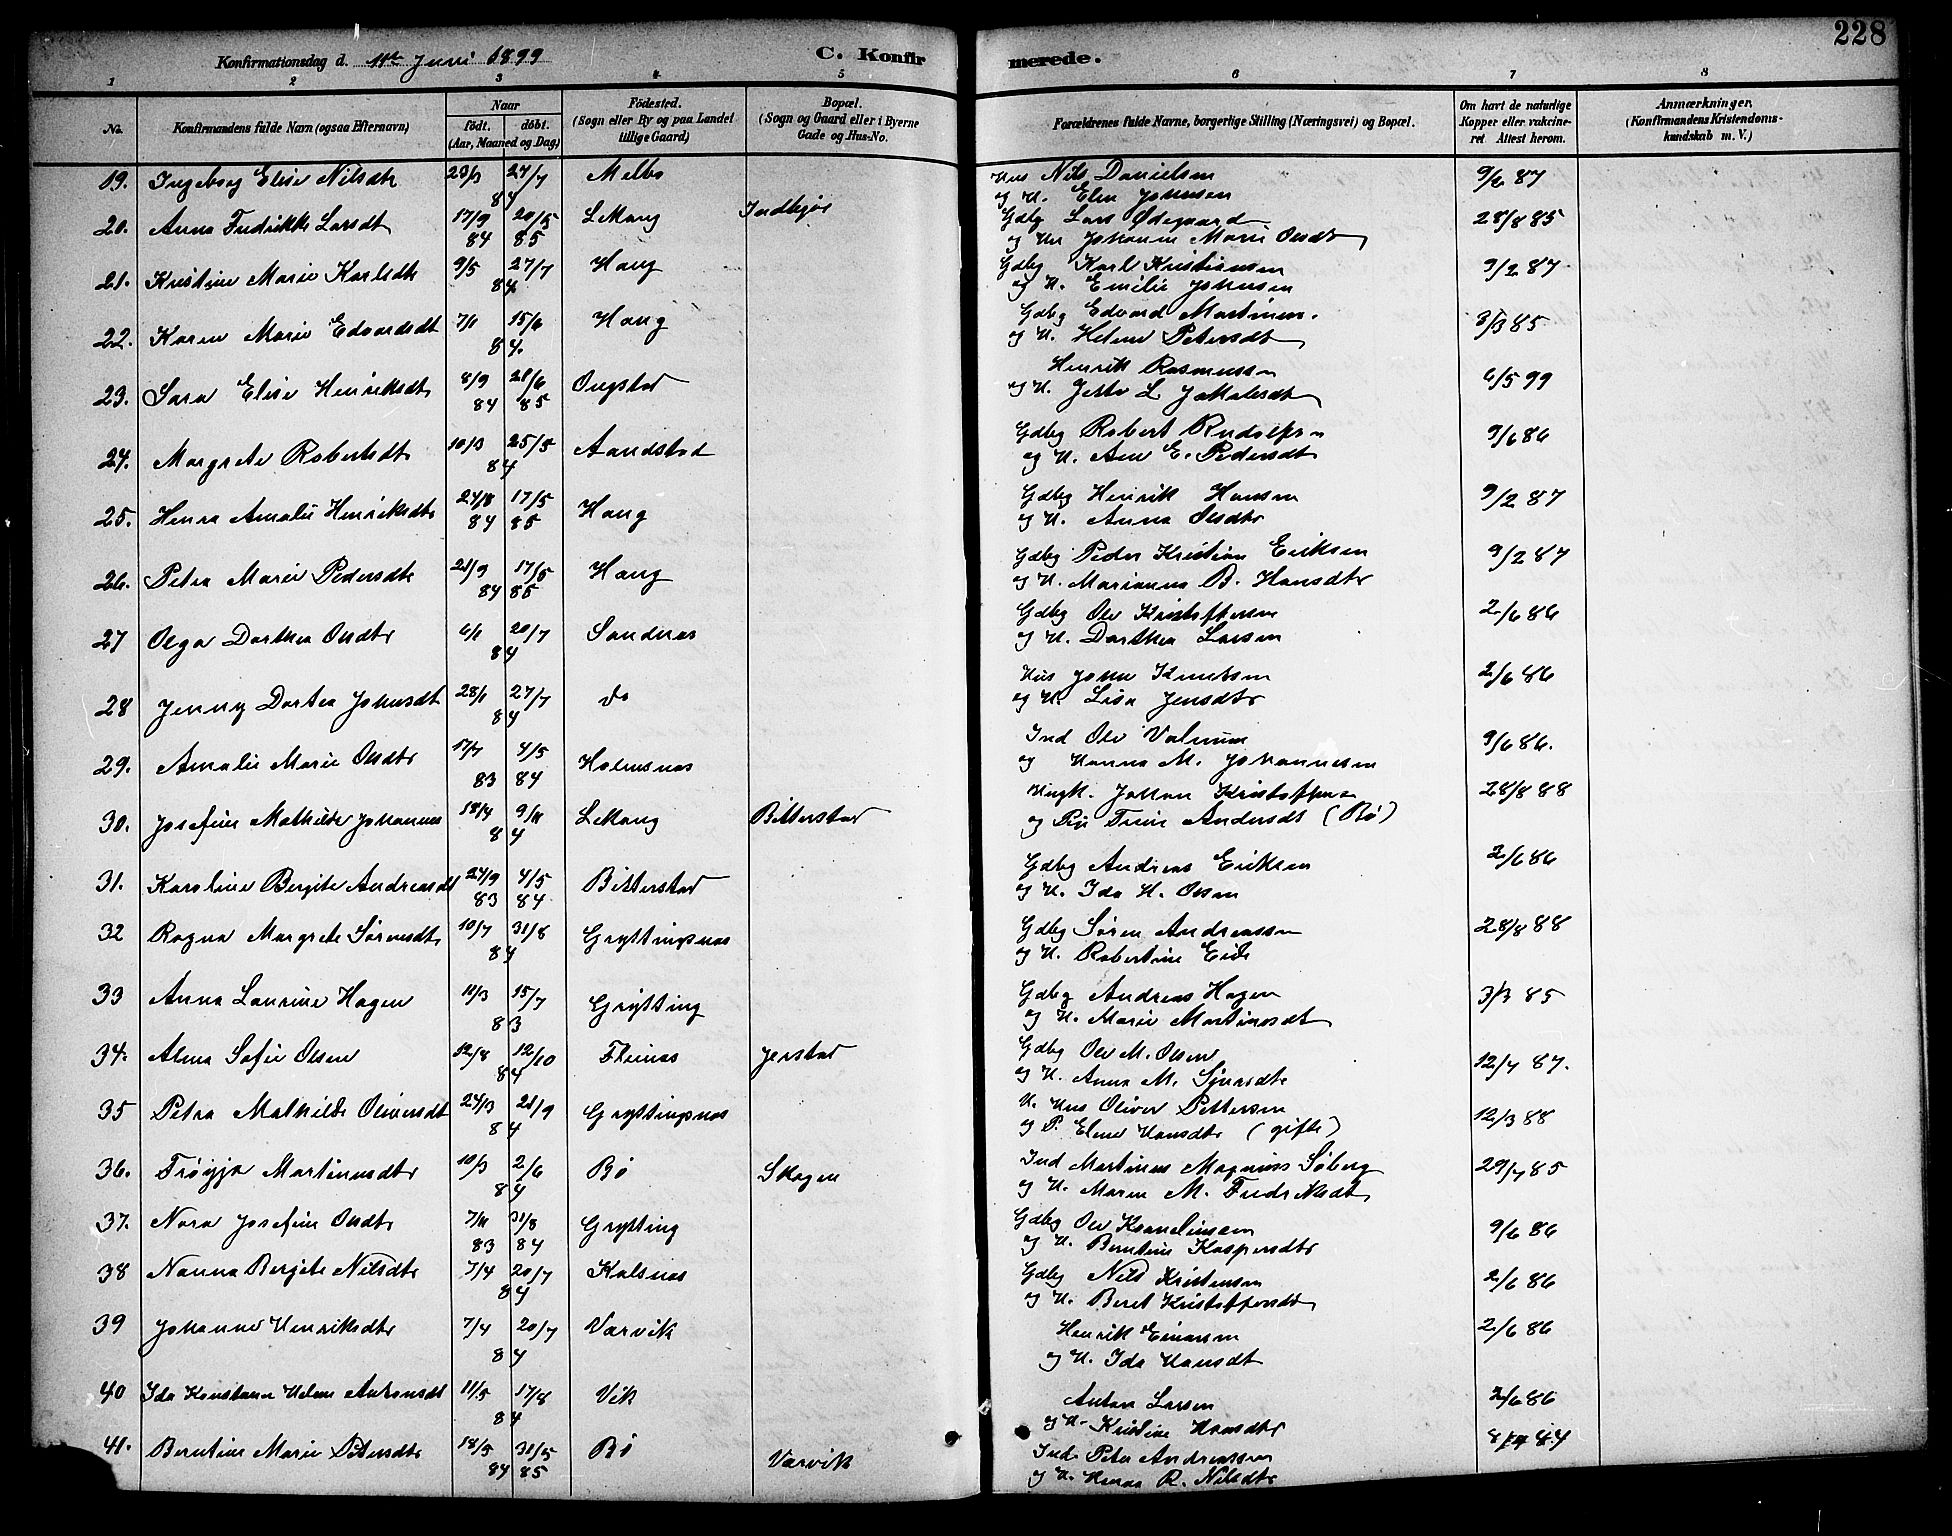 228
Konfirmationsdag d. 11te Juni 1899 C. Konfirmerede.
1 2 3 4 5 6 7 8
No. Konfirmandens fulde Navn (ogsaa Efternavn) Naar födt. döbt. (Aar, Maaned og Dag) Födested. (Sogn eller By og paa Landet tillige Gaard) Bopæl. (Sogn og Gaard eller i Byerne Gade og Hus-No. Forældrenes fulde Navne, borgerlige Stilling (Næringsvei) og Bopæl. Om havt de naturlige Kopper eller vakcineret Attest herom. Anmærkninger. (Konfirmandens Kristendomskundskab m. V.)
19. Ingeborg Elise Nilsdtr 23/3 27/7 84 Melbo Hus Nils Danielsen 9/6 87
og H. Elen Johnsen
20. Anna Fredrikke Larsdt 17/9 84 20/5 85 Lekang Indbejör Gdbg Lars Ødegaard 28/8 85
og Hu Johanna Marie Olsdt
21. Kristine Marie Karlsdtr 9/5 27/7 84 Haug Gdbg Karl Kristiansen 9/2 87
og H. Emilie Johnsen
22. Karen Marie Edvardsdt 7/1 15/6 84. Haug Gdbg Edvard Martinus. 3/3 85
og H. Helene Petersdt
23. Sara Elise Henriksdt 8/9 84 21/6 85 Ongstad Henrik Rasmussen 6/5 99
og H. Jette L. Jakobsdt
24. Margrete Robertsdt 10/3 25/5 84 Aandstad Gdbg Robert Rudolfsen 9/6 86
og H. Ane E. Pedersdt
25. Henra Amalie Henriksdtr 84 17/5 85 Haug Gdbg Henrik Hansen 9/2 87
og H. Anna Olsdtr
26. Petra Marie Pedersdtr 21/9 84 17/5 85 Haug Gdbg Peder Kristian Eriksen 9/2 87
og H. Marianna B. Hansdtr
27 Olga Dorthea Olsdtr 6/1 20/7 84 Sandnes Gdbg Ole Kristoffersen 2/6 86
og H. Dorthea Larsen
28 Jenny Dortea Johnsdt 28/1 27/7 84 do Hus John Knutsen 2/6 86
og H. Lisa Jensdtr
29. Amalie Marie Olsdtr 17/7 83 4/5 84 Holmsnes Ind Ole 9/6 86.
og Hanna M. Johannesen
30. Josefine Mathilde Johannes 18/4 9/11 84 Lekang Bitterstad Ungk. Johan Kristoffersen 28/8 88
og Pi Trine Andersdt (Bø)
31. Karoline Bergite Andreasdt 24/9 83 4/5 84 Bitterstad Gdbg Andreas Eriksen 2/6 86
og H. Ida H. Olsen
32 Ragna Margrete Sørensdtr 10/7 31/8 84 Gryttingnes Gdbg Søren Andreassen 28/8 88
og H. Robertine Eide
33 Anna Laurine Hagen 11/3 15/7 83 Grytting Gdbg Andreas Hagen 3/3 85
og H. Marie Martinusdt
34. Alma Sofie Olsen 12/8 12/10 84 Fleinæs Jerstad Gdbg Ole M. Olsen 12/7 87.
og H. Anna M. Sjursdtr
35 Petra Mathilde Oliversdt 24/3 21/9 84 Gryttingnes U. Hus Oliver Pettersen 12/3 88
og P. Eline Hansdtr (gifte)
36. Frøyja Martinusdtr 10/3 2/6 84 Bø Skagen Ind Martinus Magnus Søberg 29/7 85
og H. Maren M. Fredriksdt
37. Nora Josefine Olsdtr 7/11 83 31/8 84 Grytting Gdbg Ole Kornelinsen 9/6 86
og H. Berntine Kaspersdtr
38 Nanna Bergite Nilsdtr 7/4 20/7 84 Kalsnes Gdbg Nils Kristensen 2/6 86
og H. Beret Kristoffersdtr
39 Johanna Henriksdtr 7/4 20/7 84 Varvik Henrik Einarsen 2/6 86
og H. Ida Hansdt
40 Ida Konstanse Helene Antonsdt 11/5 17/8 84 Vik Anton Larsen 2/6 86
og H. Kristine Hansdtr
41. Berntine Marie Petersdtr 18/5 84 31/5 85 Bø Varvik Inds Peter Andreassen 84
og H. Hanna R. Nilsdtr